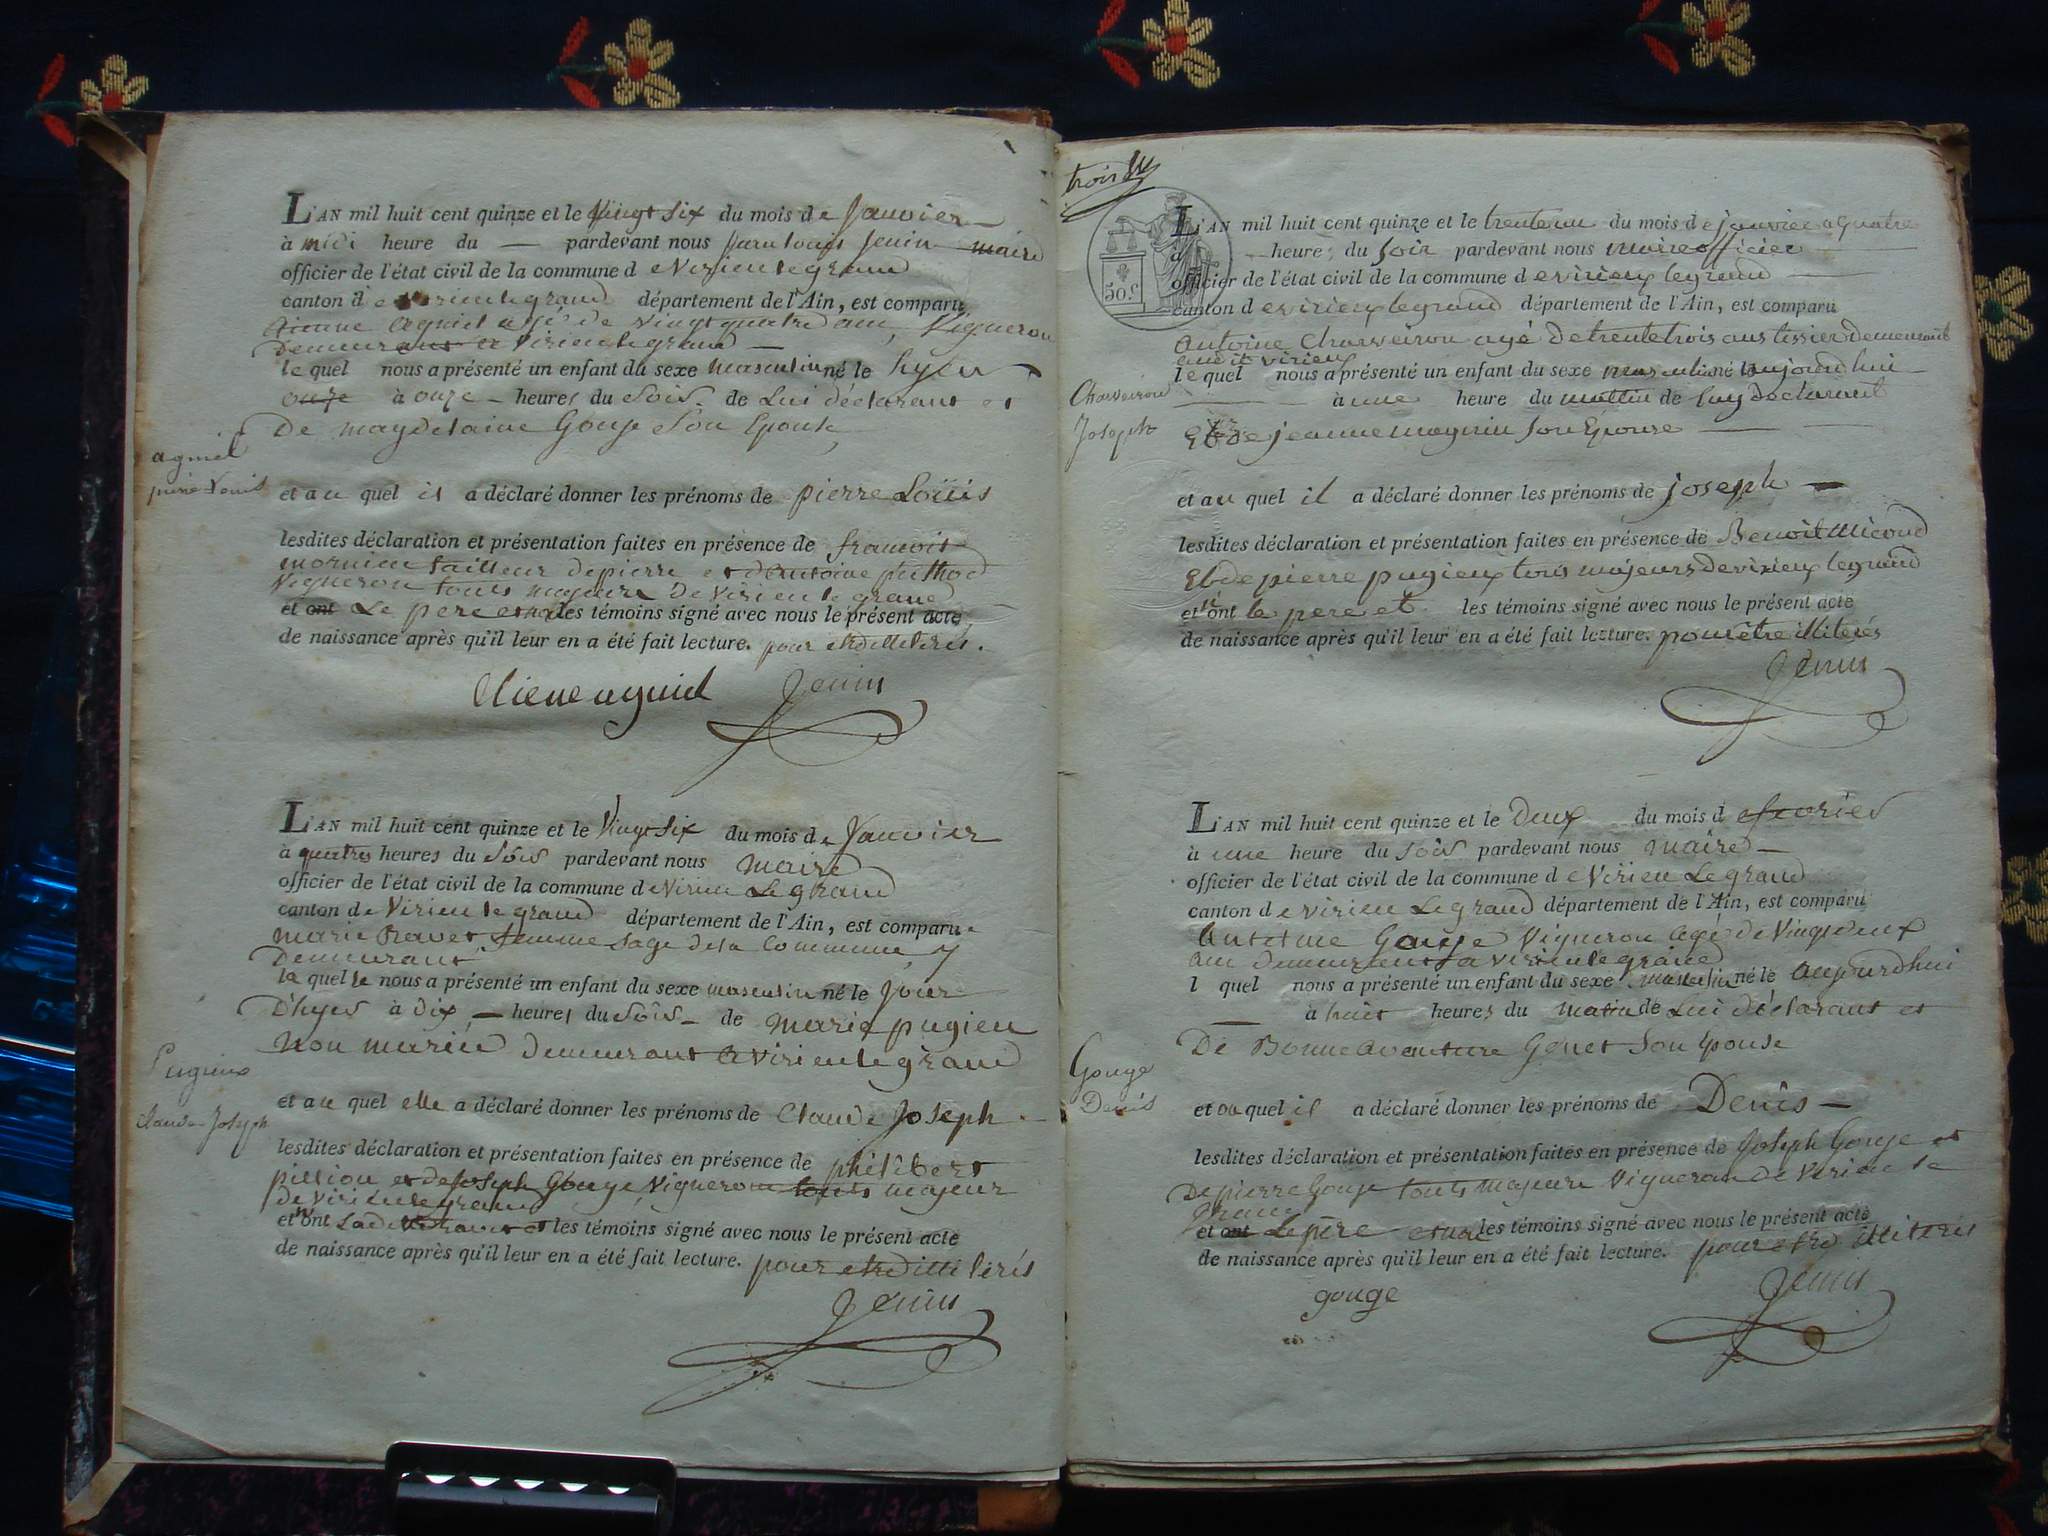 L'AN mil huit cent quinze et le Vingt six du mois de Janvier
à midi heure du — pardevant nous jenin maire
officier de l'état civil de la commune de Virieu le grand
canton de Virieu le grand département de l'Ain, est comparu
Etienne agniel agé de vingt quatre ans, Vigneron
Demeurant a Virieu le grand —
le quel nous a présenté un enfant du sexe masculin né le hyer
onze à onze — heures du Soir de Lui déclarant et
De magdelaine Gouje Son Epouse
agniel
pierre Louis
et au quel il a déclaré donner les prénoms de pierre Loüis
lesdites déclaration et présentation faites en présence de francois
mornieu tailleur de pierre et d'antoine puthod
Vigneron touts majeurs de Virieu le grand
et ont Le pere et les témoins signé avec nous le présent acte
de naissance après qu'il leur en a été fait lecture. pour etre illiterés.
Etiene agniel Jenin
L'AN mil huit cent quinze et le Vingt Six du mois de Janvier
à quatres heures du Soir pardevant nous maire
officier de l'état civil de la commune de Virieu Le grand
canton de Virieu le grand département de l'Ain, est comparue
marie Ravet femme sage de la Commune y
Demeurant
la quelle nous a présenté un enfant du sexe masculin né le jour
D'hyer à dix — heures du Soir — de marie pugieu
non mariée demeurant a Virieu le grand
Pugieux
Claude Joseph
et au quel elle a déclaré donner les prénoms de Claude Joseph
lesdites déclaration et présentation faites en présence de philibert
pillion et de joseph Gouje Vigneron touts majeur
de Virieu le grand
et n'ont Ladite Ravet et les témoins signé avec nous le présent acte
de naissance après qu'il leur en a été fait lecture. pour etre illiterés
Jenin
trois
50 c.
L'AN mil huit cent quinze et le trente un du mois de janvier a quatre
à — heure du soir pardevant nous maire officier
officier de l'état civil de la commune de virieux le grand
canton de virieux le grand département de l'Ain, est comparu
Antoine Charveiron agé de trente trois ans tissier demeurant
audit virieux
le quel nous a présenté un enfant du sexe masculin né aujourd'hui
à une heure du mattin de luy declarant
Et de jeanne magnin son Epouse
Charveiron
Joseph
et au quel il a déclaré donner les prénoms de joseph —
lesdites déclaration et présentation faites en présence de Benoit Micoud
Et de pierre pugieux tous majeurs de virieux le grand
et n'ont le pere et les témoins signé avec nous le présent acte
de naissance après qu'il leur en a été fait lecture. pour être illiterés
Jenin
L'AN mil huit cent quinze et le Deux du mois de fevrier
à une heure du soir pardevant nous maire —
officier de l'état civil de la commune de Virieu Le grand
canton de virieu Le grand département de l'Ain, est comparu
Antelme Gouje Vigneron agé de Vingt deux
ans demeurant a virieu le grand
l quel nous a présenté un enfant du sexe masculin né le aujourdhui
— à huit heures du matin de Lui déclarant et
De Bonneaventure Genet Son Epouse
Gouge
Denis
et au quel il a déclaré donner les prénoms de Denis —
lesdites déclaration et présentation faites en présence de Joseph Gouje et
De pierre Gouje touts majeurs Vigneron de Virieu le
grand
et ont Le père et les témoins signé avec nous le présent acte
de naissance après qu'il leur en a été fait lecture. pour etre illiterés
gouge Jenin